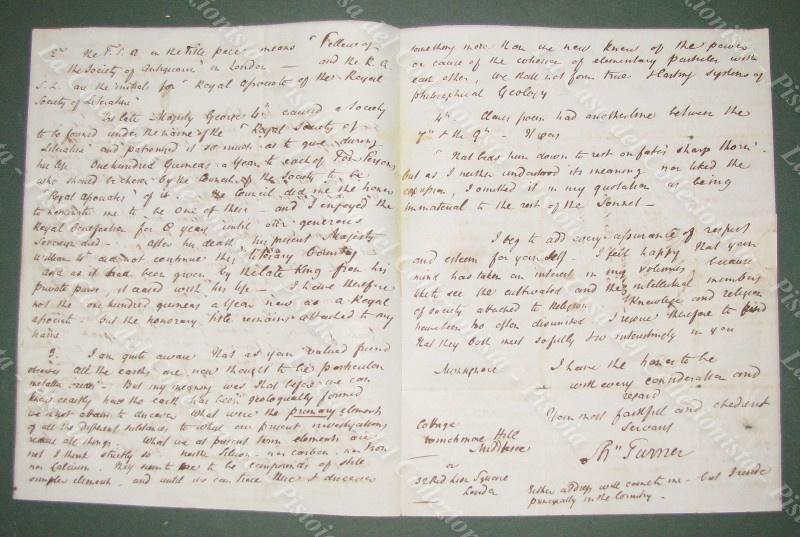 2nd the F.S.A in the title page means "Fellow of
the Society of Antiquaries" in London — and the R.A.
S.L. are the initials for "Royal Associate of the Royal
Society of Literature"
His late Majesty George 4th caused a Society
to be formed under the name of the "Royal Society of
Literature" and patronised it so much as to give during
his life One hundred Guineas a Year to each of Ten Persons
who should be chosen by the Council of the Society to be
"Royal Associates" of it. The Council did me the honor
to nominate me to be one of these — and I enjoyed the
Royal benefaction for 6 years until our generous
Sovereign died — after his death his present Majesty
William 4th did not continue this literary bounty
and as it had been given by the late King from his
private purse, it ceased with his life — I have therefore
not the one hundred guineas a Year now as a Royal
Associate — but the honorary title remains attached to my
name
3. I am quite aware that as your valued friend
observes all the earths are now thought to be
metallic oxides. But my meaning was that before we can
know exactly how the earth has been geologically formed
we must obtain to discover what were the primary elements
of all the different substances to what our present investigations
reduce all things. What we at present term elements are
not I think strictly so — neither Silicon — nor carbon — nor Iron
nor Calcium. They seem to me to be compounds of still
simpler elements, and until we can trace these & discover
something more than we now know of the power
or cause of the cohesion of elementary particles with
each other, we shall not form true & lasting systems of
philosophical Geology
4th poem had another line between the
7th & the 9th — It was
"That beds him down to rest on fate's sharp thorn"
but as I neither understood its meaning nor liked the
expression, I omitted it in my quotation as being
immaterial to the rest of the Sonnet —
I beg to add every assurance of respect
and esteem for yourself. I feel happy that your
mind has taken an interest in my volumes because
I like to see the cultivated and the intellectual members
of society attached to Religion. Knowledge and religion
have been too often disunited I rejoice therefore to find
that they both meet so fully & so interestingly in you
I have the honor to be
with every consideration and
regard
Your most faithful and obedient
Servant
Shn Turner
Cottage
Winchmore Hill
Middlesex
or
32 Red Lion Square
London
Either address will come to me — but I reside
principally in the Country —
Lo
Pistoia
del Collezionista